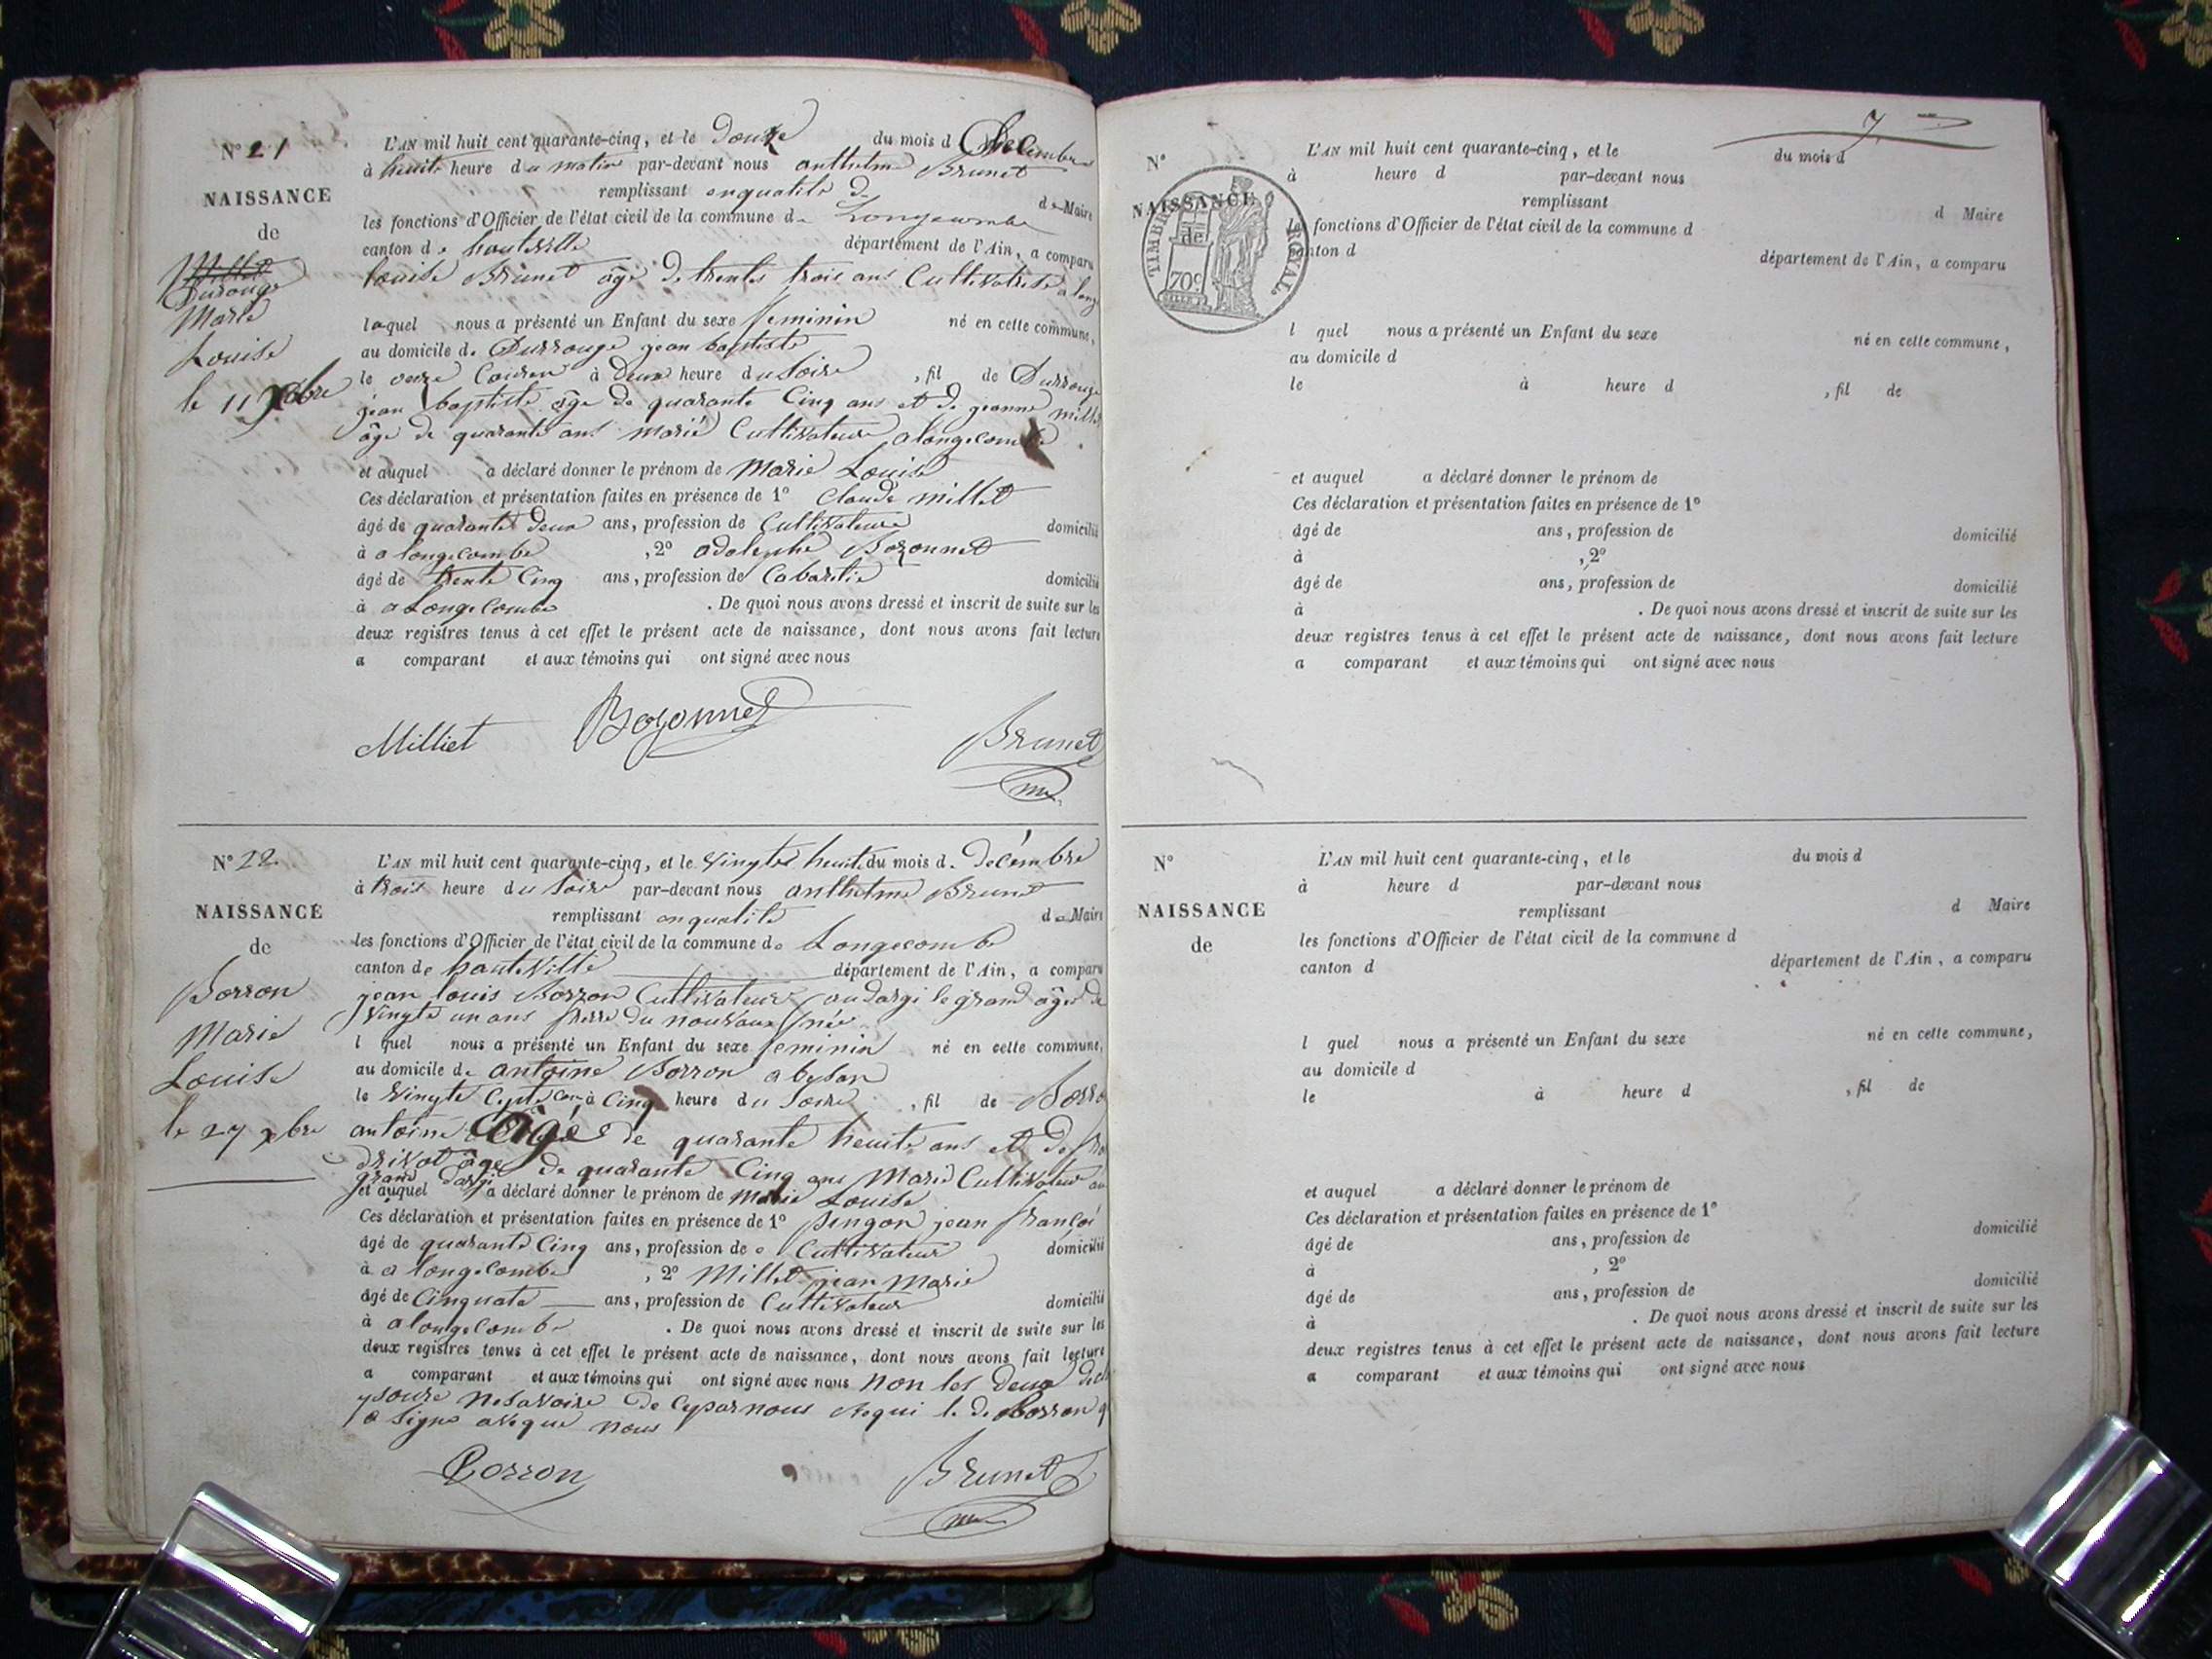 N° 21
NAISSANCE
de
Durouge
Marie
Louise
le 11 xbre
L'AN mil huit cent quarante-cinq, et le douze du mois d Decembre
à heuite heure du matin par-devant nous anthelme Brunet
remplissant en qualité de de Maire
les fonctions d'Officier de l'état civil de la commune de Longecombe
canton de hauteville département de l'Ain, a comparu
louise Brunet âgé de trentes trois ans Cultivatrise a long
laquel nous a présenté un Enfant du sexe feminin né en cette commune,
au domicile de Durrouge jean baptiste
le onze Couran à deux heure du Soire , fil de Durrouge
jean baptiste âge de quarante Cinq ans et de jeanne mille
âge de quarante ans marié Cultivateur a longecombe
et auquel a déclaré donner le prénom de Marie Louise
Ces déclaration et présentation faites en présence de 1° Claude millet
âgé de quarante deux ans, profession de Cultivateure domicilié
à a longecombe , 2° adolephe Bozonnet
âgé de trente Cinq ans, profession de Cabartié domicilié
à a Longecombe . De quoi nous avons dressé et inscrit de suite sur les
deux registres tenus à cet effet le présent acte de naissance, dont nous avons fait lecture
a comparant et aux témoins qui ont signé avec nous
Milliet Bozonnet Brunet
N° 22
NAISSANCE
de
Borron
Marie
Louise
le 27 xbre
L'AN mil huit cent quarante-cinq, et le vingtes heuit du mois d. decémbre
à trois heure du Soire par-devant nous anthelme Brunet
remplissant en qualité de Maire
les fonctions d'Officier de l'état civil de la commune de Longecombe
canton de hauteville département de l'Ain, a comparu
jean louis Borron Cultivateur au dargi le grand âgé de
vingte un ans frere du nouvaux née
l quel nous a présenté un Enfant du sexe feminin né en cette commune,
au domicile de antoine Borron
le vingte Cepte cou à Cinq heure du Soire , fil de Borro
antoine âgé de quarante heuite ans et de
drivot âge de quarante Cinq ans Marié Cultivateur au
grand dargi
et auquel a déclaré donner le prénom de marie Louise
Ces déclaration et présentation faites en présence de 1° pingon jean françoi
âgé de quarante Cinq ans, profession de Cultivateur domicilié
à a longecombe , 2° Millet jean Marie
âgé de Cinquate ans, profession de Cultivateur domicilié
à a longecombe . De quoi nous avons dressé et inscrit de suite sur les
deux registres tenus à cet effet le présent acte de naissance, dont nous avons fait lecture
a comparant et aux témoins qui ont signé avec nous non les deux
de Ceparnous Requi le d. Borron q
a Signe aveque nous
Borron Brunet
7
N°
NAISSANCE
de
TIMBRE ROYAL
70c
L'AN mil huit cent quarante-cinq, et le du mois d
à heure d par-devant nous
remplissant d Maire
les fonctions d'Officier de l'état civil de la commune d
canton d département de l'Ain, a comparu
l quel nous a présenté un Enfant du sexe né en cette commune,
au domicile d
le à heure d , fil de
et auquel a déclaré donner le prénom de
Ces déclaration et présentation faites en présence de 1°
âgé de ans, profession de domicilié
à , 2°
âgé de ans, profession de domicilié
à . De quoi nous avons dressé et inscrit de suite sur les
deux registres tenus à cet effet le présent acte de naissance, dont nous avons fait lecture
a comparant et aux témoins qui ont signé avec nous
N°
NAISSANCE
de
L'AN mil huit cent quarante-cinq, et le du mois d
à heure d par-devant nous
remplissant d Maire
les fonctions d'Officier de l'état civil de la commune d
canton d département de l'Ain, a comparu
l quel nous a présenté un Enfant du sexe né en cette commune,
au domicile d
le à heure d , fil de
et auquel a déclaré donner le prénom de
Ces déclaration et présentation faites en présence de 1°
âgé de ans, profession de domicilié
à , 2°
âgé de ans, profession de domicilié
à . De quoi nous avons dressé et inscrit de suite sur les
deux registres tenus à cet effet le présent acte de naissance, dont nous avons fait lecture
a comparant et aux témoins qui ont signé avec nous